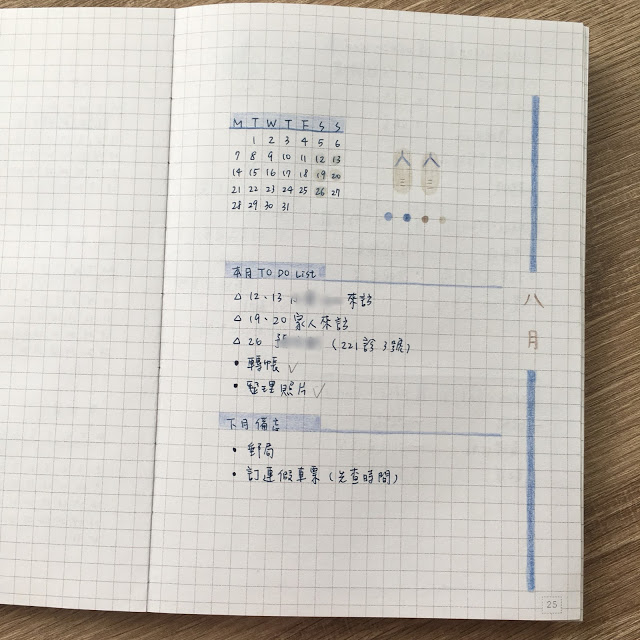 M T W T F S S
1 2 3 4 5 6
7 8 9 10 11 12 13
14 15 16 17 18 19 20
21 22 23 24 25 26 27
28 29 30 31
八月
本月 TO DO List
△ 12、13 來訪
△ 19、20 家人來訪
△ 26 (221診 3號)
• 轉帳 ✓
• 整理照片 ✓
下月備忘
• 郵局
• 訂連假車票 (先查時間)
25